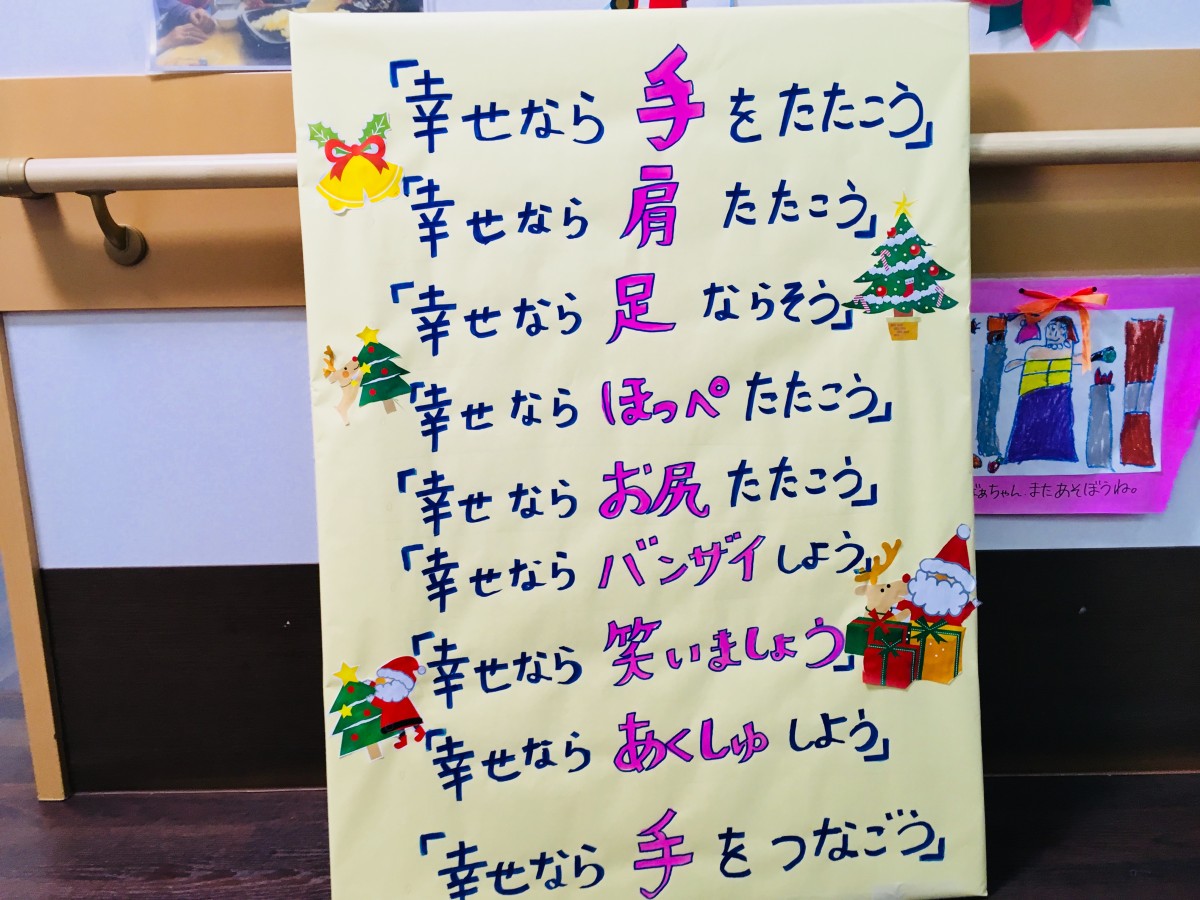 「幸せなら 手 をたたこう」
「幸せなら 肩 たたこう」
「幸せなら 足 ならそう」
「幸せなら ほっぺ たたこう」
「幸せなら お尻 たたこう」
「幸せなら バンザイ しよう」
「幸せなら 笑いましょう」
「幸せなら あくしゅ しよう」
「幸せなら 手 をつなごう」
ばぁちゃん、またあそぼうね。